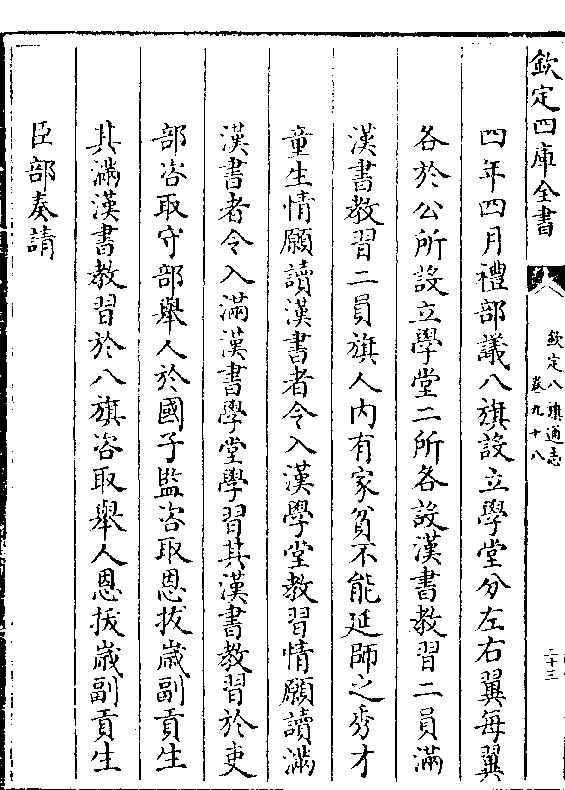 欽定四庫全書
欽定八旗通志
卷九十八
二十三
四年四月禮部議八旗設立學堂分左右翼每翼
各於公所設立學堂二所各設漢書教習二員滿
漢書教習二員旗人内有家貧不能延師之秀才
童生情願讀漢書者令入漢學堂教習情願讀滿
漢書者令入滿漢書學堂學習其漢書教習於吏
部咨取守部舉人於國子監咨取恩拔歲副貢生
其滿漢書教習於八旗咨取舉人恩拔歲副貢生
臣部奏請